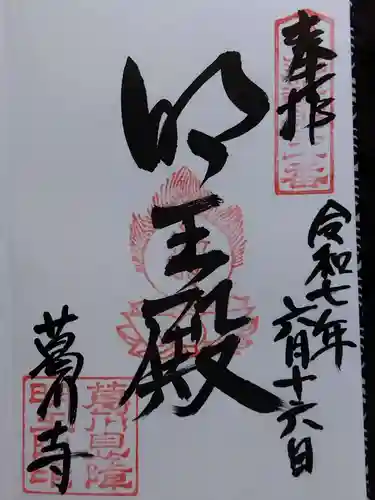 奉拝
令和七年
六月十六日
明王殿
葛川寺
葛川息障
明王院印